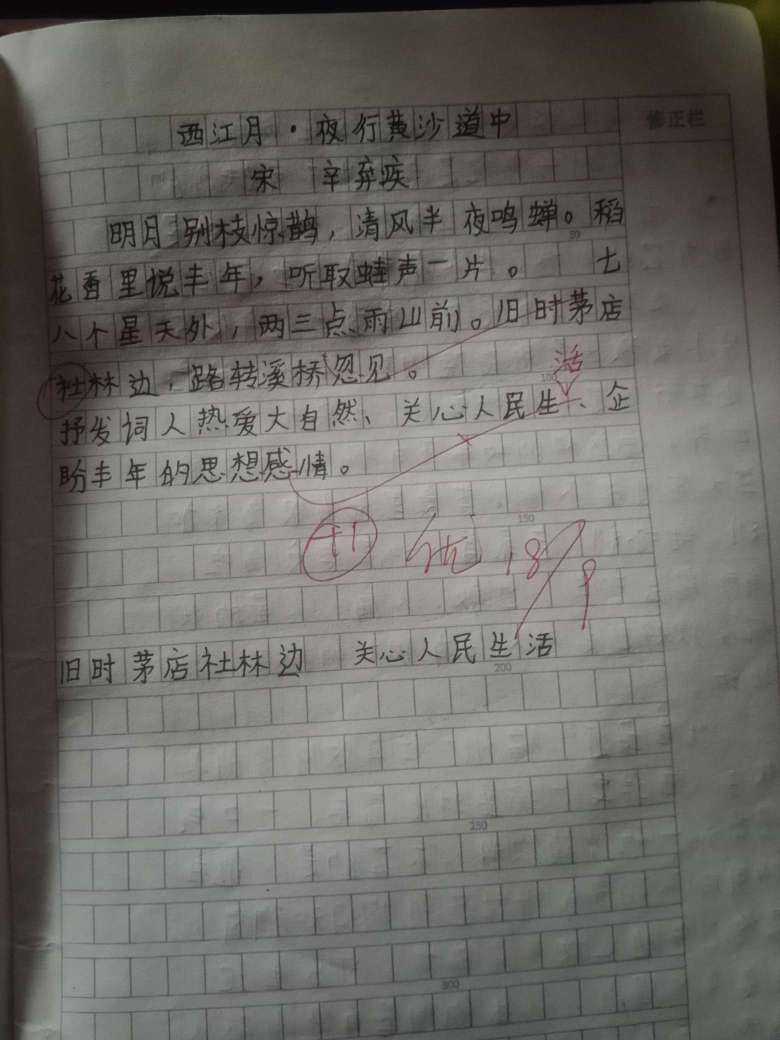 西江月·夜行黄沙道中
修正栏
宋 辛弃疾
明月别枝惊鹊，清风半夜鸣蝉。稻
50
花香里说丰年，听取蛙声一片。 七
八个星天外，两三点雨山前。旧时茅店
社林边，路转溪桥忽见。
活
100
抒发词人热爱大自然、关心人民生、企
盼丰年的思想感情。
150
+1 优 18/9
旧时茅店社林边 关心人民生活
200
250
300